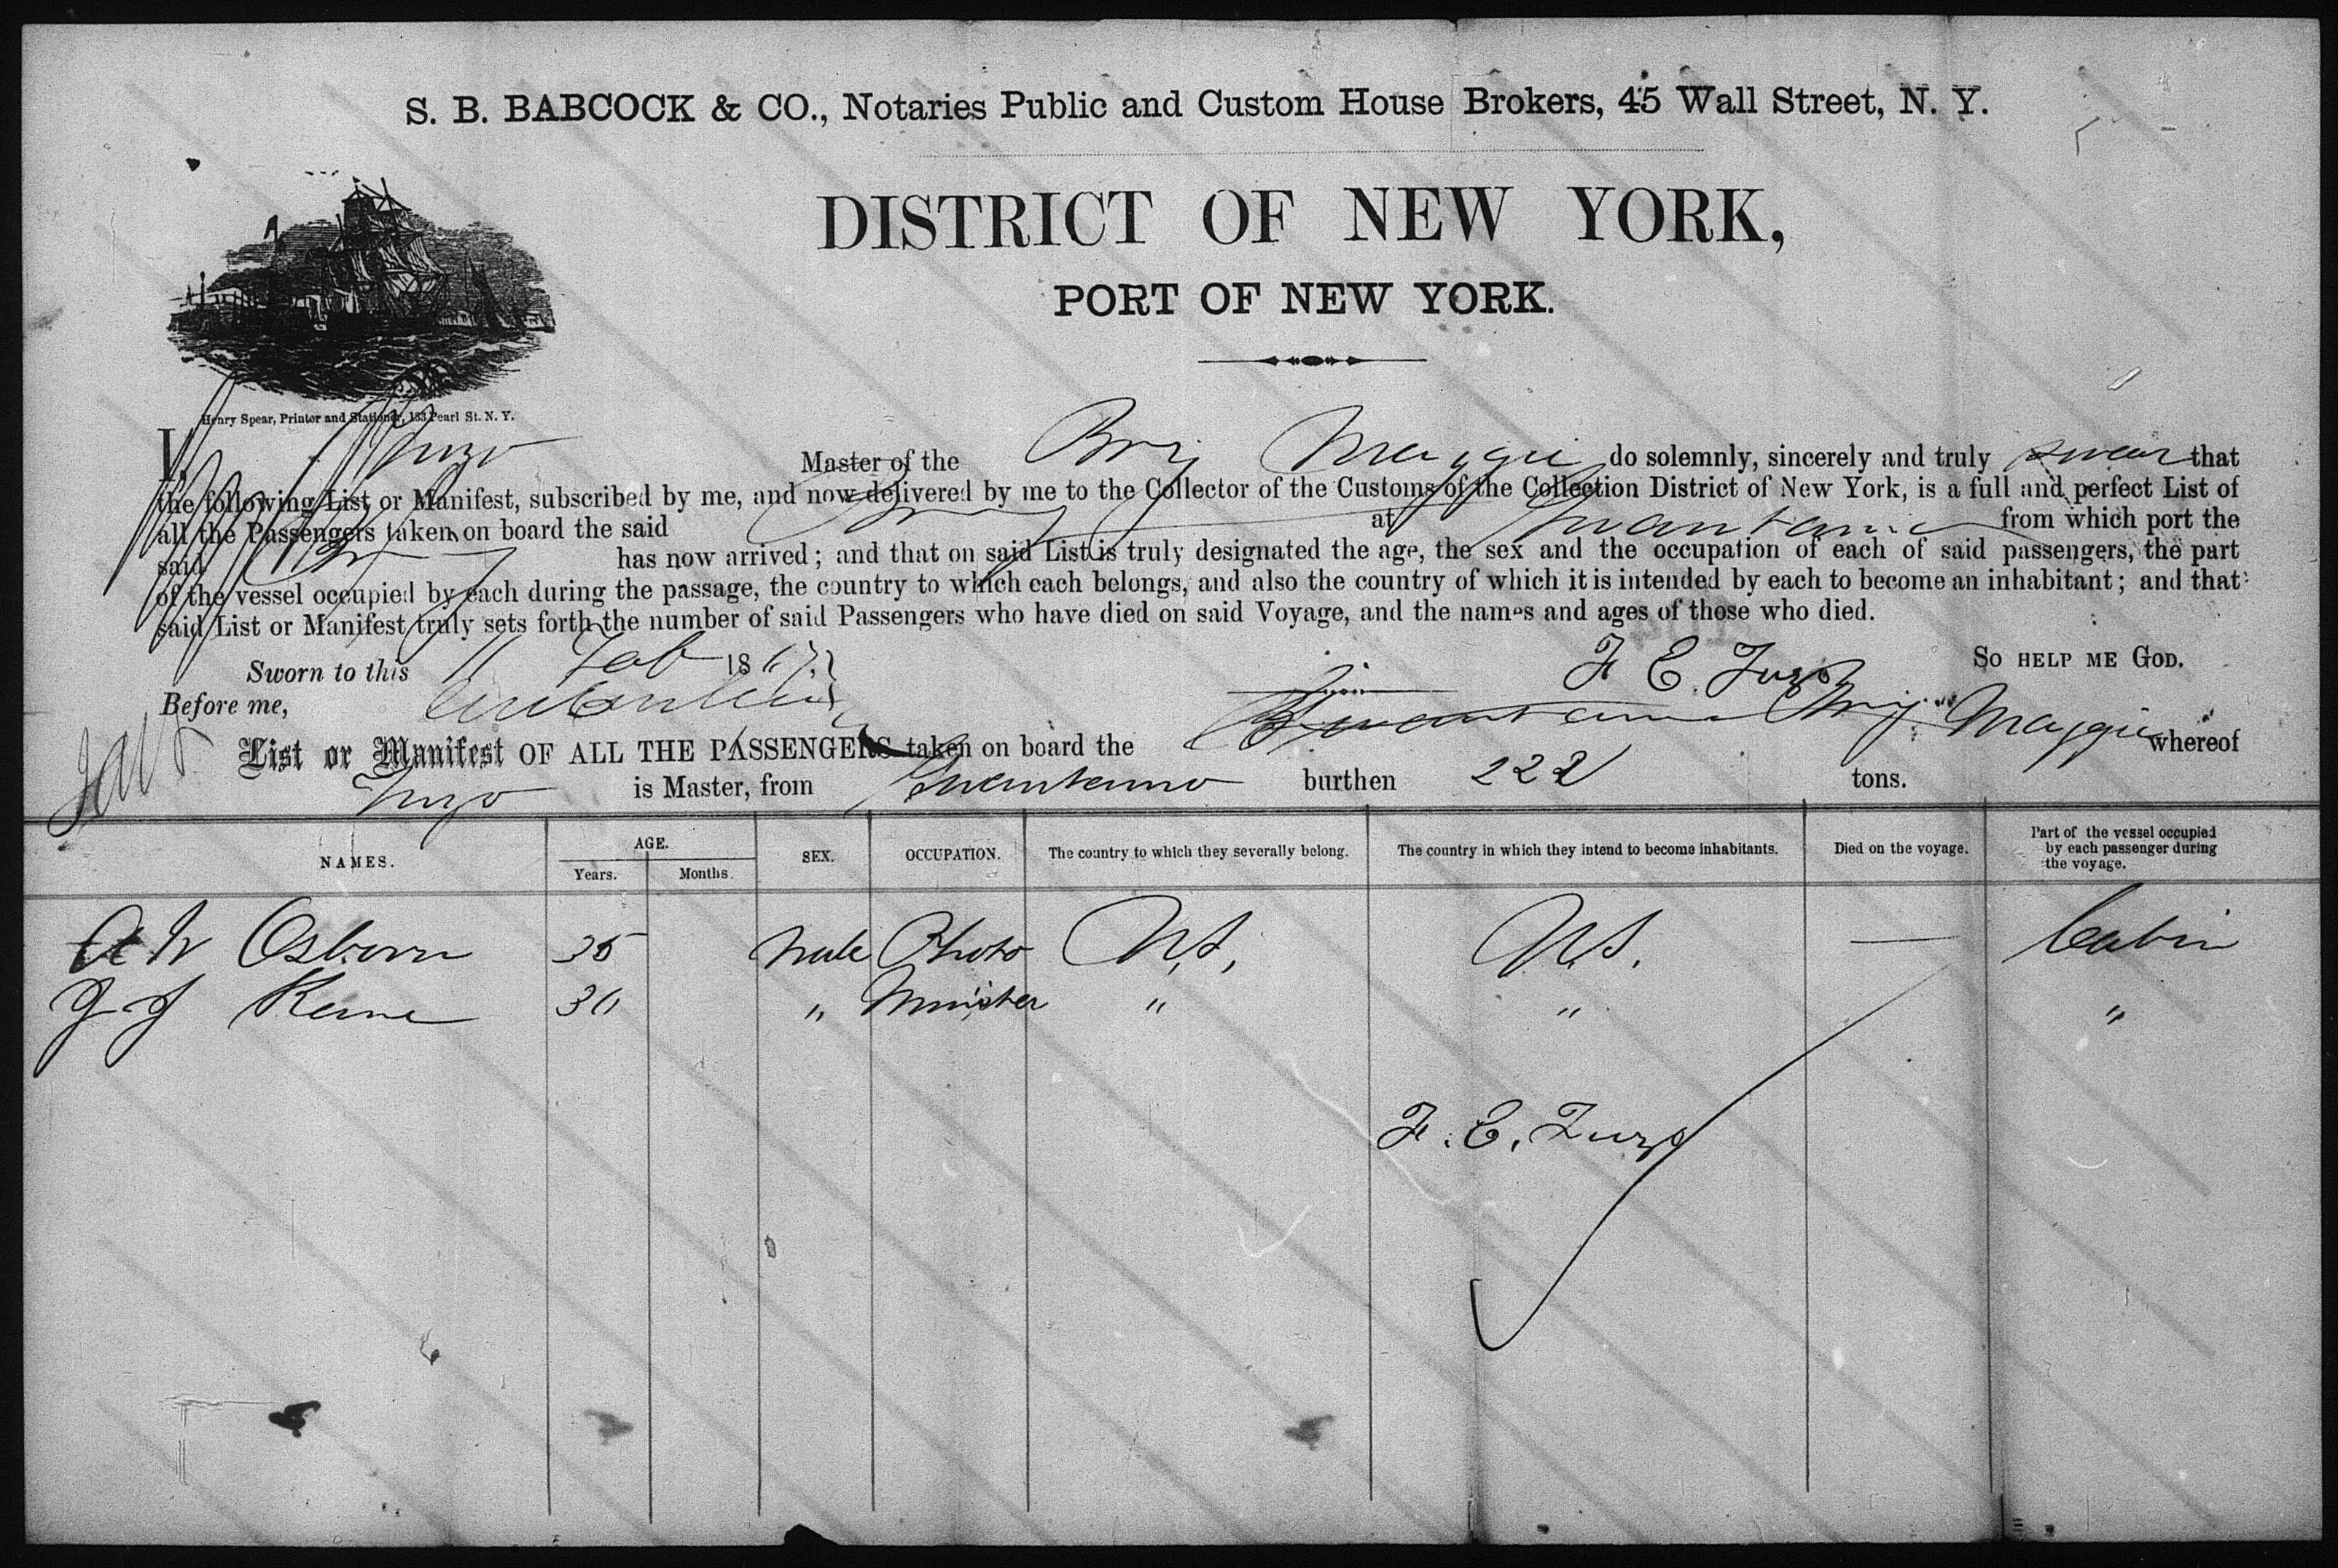 S. B. BABCOCK & CO., Notaries Public and Custom House Brokers, 45 Wall Street, N. Y.
DISTRICT OF NEW YORK,
PORT OF NEW YORK.
Henry Spear, Printer and Stationer, 133 Pearl St. N. Y.
I, Master of the Brig Maggie do solemnly, sincerely and truly swear that
the following List or Manifest, subscribed by me, and now delivered by me to the Collector of the Customs of the Collection District of New York, is a full and perfect List of
all the Passengers taken on board the said Brig at from which port the
said Brig has now arrived; and that on said List is truly designated the age, the sex and the occupation of each of said passengers, the part
of the vessel occupied by each during the passage, the country to which each belongs, and also the country of which it is intended by each to become an inhabitant; and that
said List or Manifest truly sets forth the number of said Passengers who have died on said Voyage, and the names and ages of those who died.
Sworn to this 11 Feb 1867 F E SO HELP ME GOD.
Before me,
List or Manifest OF ALL THE PASSENGERS taken on board the Brig Maggie whereof
is Master, from burthen 222 tons.
NAMES. AGE. Years. Months. SEX. OCCUPATION. The country to which they severally belong. The country in which they intend to become inhabitants. Died on the voyage. Part of the vessel occupied by each passenger during the voyage.
Osborn 35 Male Photo U.S. U.S. — Cabin
J J 30 " Minister " " "
F. E.